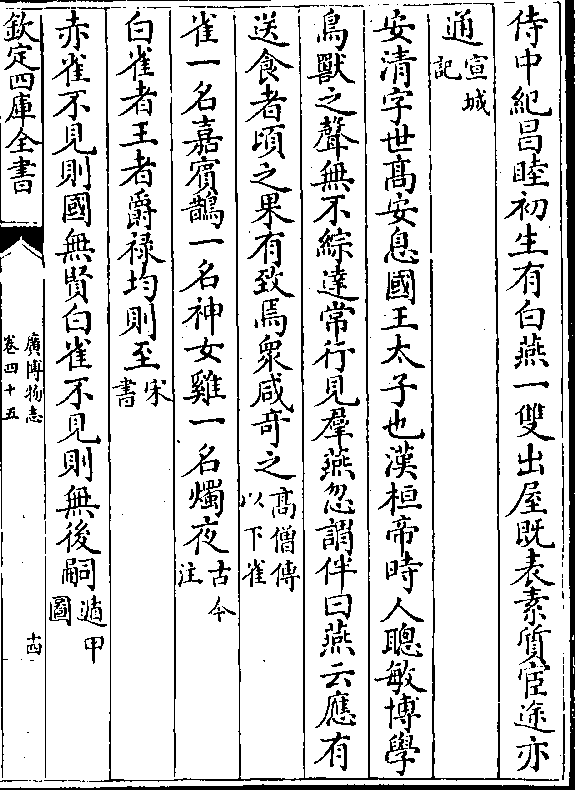 侍中紀昌睦初生有白燕一雙出屋既表素質宦途亦
通宣城記
安清字世髙安息國王太子也漢桓帝時人聰敏博學
鳥獸之聲無不綜達常行見羣燕忽謂伴曰燕云應有
送食者頃之果有致焉衆咸竒之髙僧傳以下雀
雀一名嘉賓鵲一名神女雞一名燭夜古今注
白雀者王者爵禄均則至宋書
赤雀不見則國無賢白雀不見則無後嗣遁甲圖
欽定四庫全書
廣博物志
卷四十五
十四